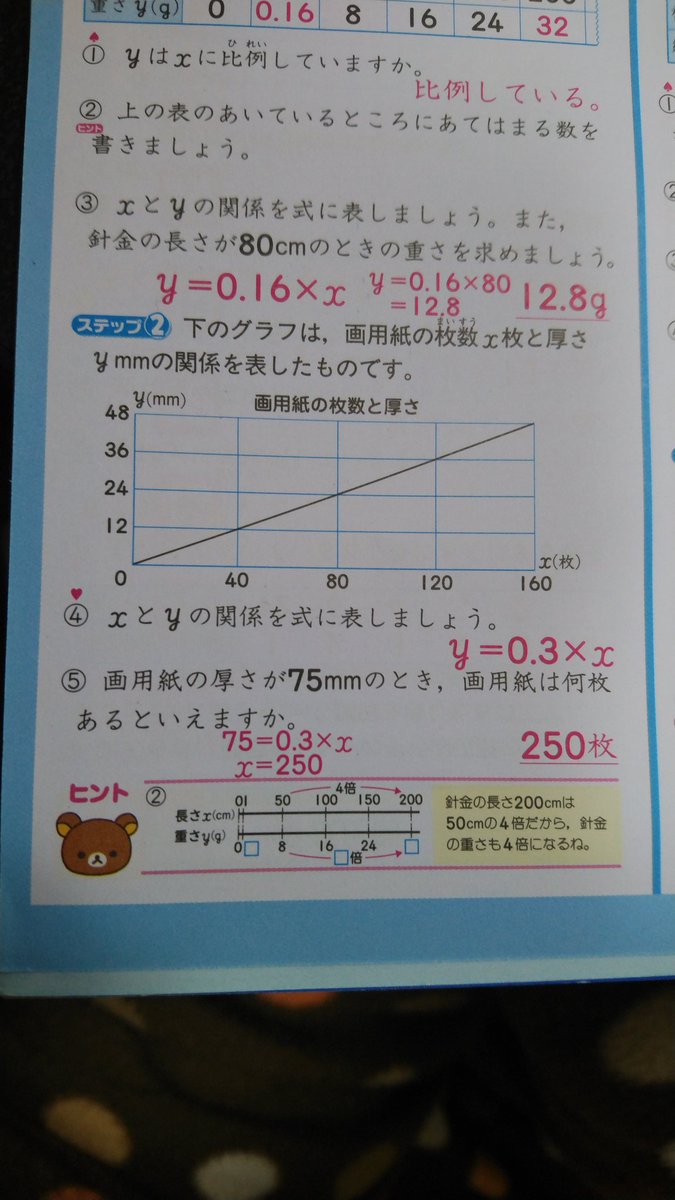 重さy(g) 0 0.16 8 16 24 32
① yはxに比例していますか。
ひれい
比例している。
② 上の表のあいているところにあてはまる数を
ヒント
書きましょう。
③ xとyの関係を式に表しましょう。また，
針金の長さが80cmのときの重さを求めましょう。
y=0.16×x y=0.16×80
=12.8 12.8g
ステップ2 下のグラフは，画用紙の枚数x枚と厚さ
まいすう
ymmの関係を表したものです。
y(mm) 画用紙の枚数と厚さ
48
36
24
12
0 40 80 120 160 x(枚)
④ xとyの関係を式に表しましょう。
y=0.3×x
⑤ 画用紙の厚さが75mmのとき，画用紙は何枚
あるといえますか。
75=0.3×x
x=250 250枚
ヒント ② 4倍
長さx(cm) 01 50 100 150 200
重さy(g) 0□ 8 16 24 □
□倍
針金の長さ200cmは
50cmの4倍だから，針金
の重さも4倍になるね。